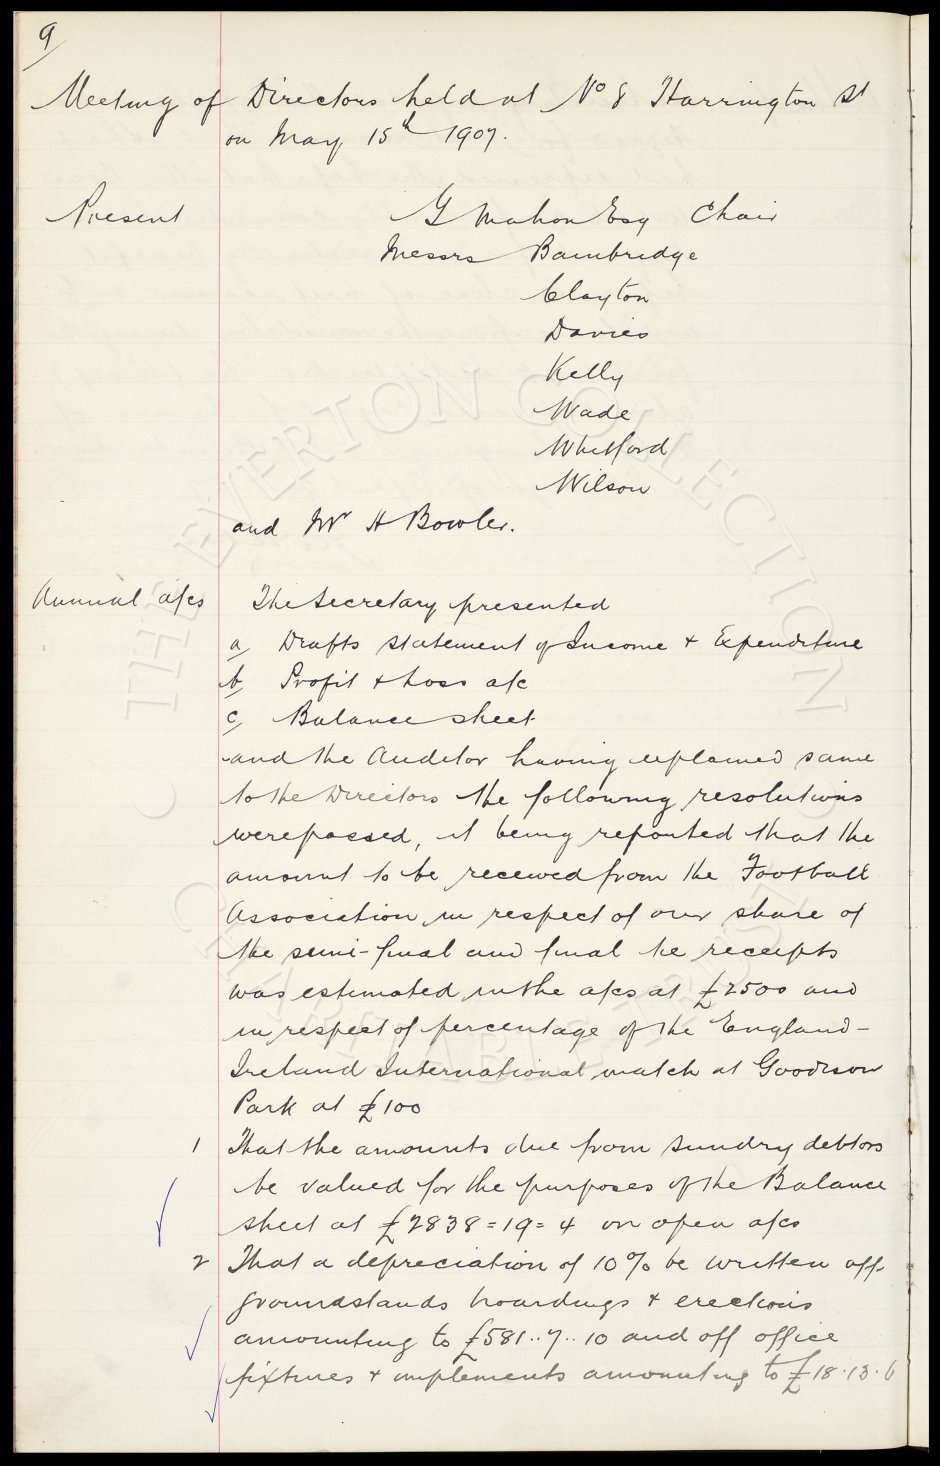 9
Meeting of Directors held at No 8 Harrington St
on May 15th 1907.
Present
G Mahon Esq Chair
Messrs Bainbridge
Clayton
Davies
Kelly
Wade
Whitford
Wilson
and Mr H Bowler.
Annual a/cs The Secretary presented
a/ Drafts statement of Income + Expenditure
b/ Profit + Loss a/c
c/ Balance sheet
and the Auditor having explained same
to the Directors the following resolutions
were passed, it being reported that the
amount to be received from the Football
Association in respect of our share of
the semi-final and final tie receipts
was estimated in the a/cs at £2500 and
in respect of percentage of the England-
Ireland International match at Goodison
Park at £100
1 That the amounts due from sundry debtors
be valued for the purposes of the Balance
sheet at £2838=19=4 on open a/cs
2 That a depreciation of 10% be written off
groundstands hoardings + erections
amounting to £581..7..10 and off office
fixtures + implements amounting to £18.13.6
THE EVERTON COLLECTION
CHARITABLE TRUST